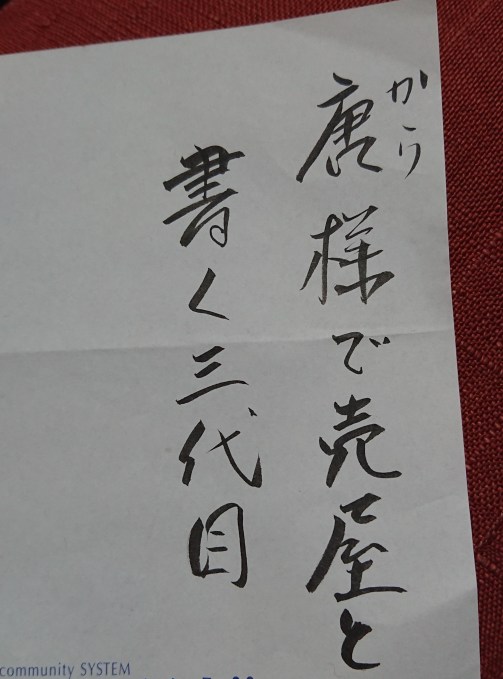 から
唐様で売屋と
書く三代目
community SYSTEM